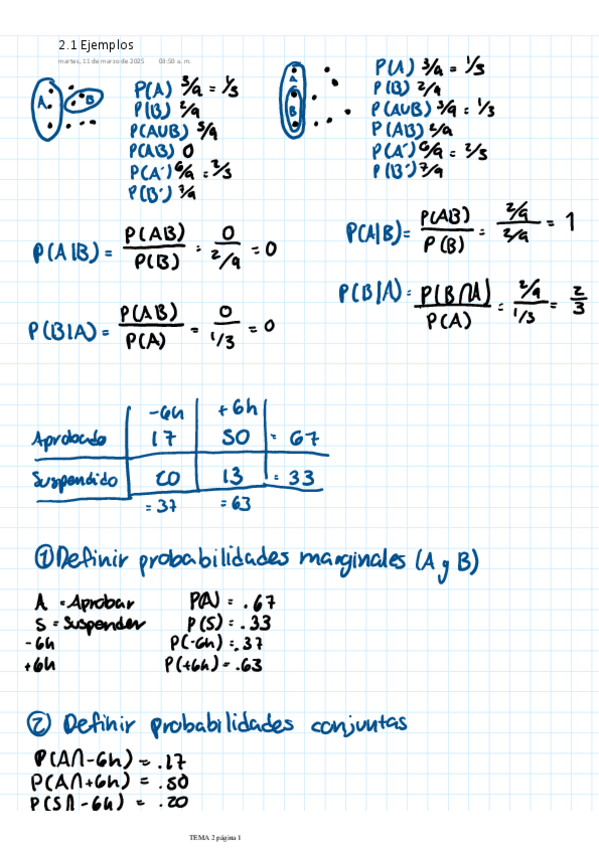 2.1 Ejemplos
martes, 11 de marzo de 2025 03:50 a. m.
A B
P(A) 3/9 = 1/3
P(B) 2/9
P(AUB) 5/9
P(AB) 0
P(A') 6/9 = 2/3
P(B') 7/9
A
B
P(A) 3/9 = 1/3
P(B) 2/9
P(AUB) 3/9 = 1/3
P(AB) 2/9
P(A') 6/9 = 2/3
P(B') 7/9
P(A|B) = P(AB)/P(B) = 0/2/9 = 0
P(B|A) = P(AB)/P(A) = 0/1/3 = 0
P(A|B) = P(AB)/P(B) = 2/9/2/9 = 1
P(B|A) = P(B∩A)/P(A) = 2/9/1/3 = 2/3
-6h +6h
Aprobado 17 50 = 67
Suspendido 20 13 = 33
= 37 = 63
① Definir probabilidades marginales (A y B)
A = Aprobar P(A) = .67
S = Suspender P(S) = .33
-6h P(-6h) = .37
+6h P(+6h) = .63
② Definir probabilidades conjuntas
P(A∩-6h) = .17
P(A∩+6h) = .50
P(S∩-6h) = .20
TEMA 2 página 1